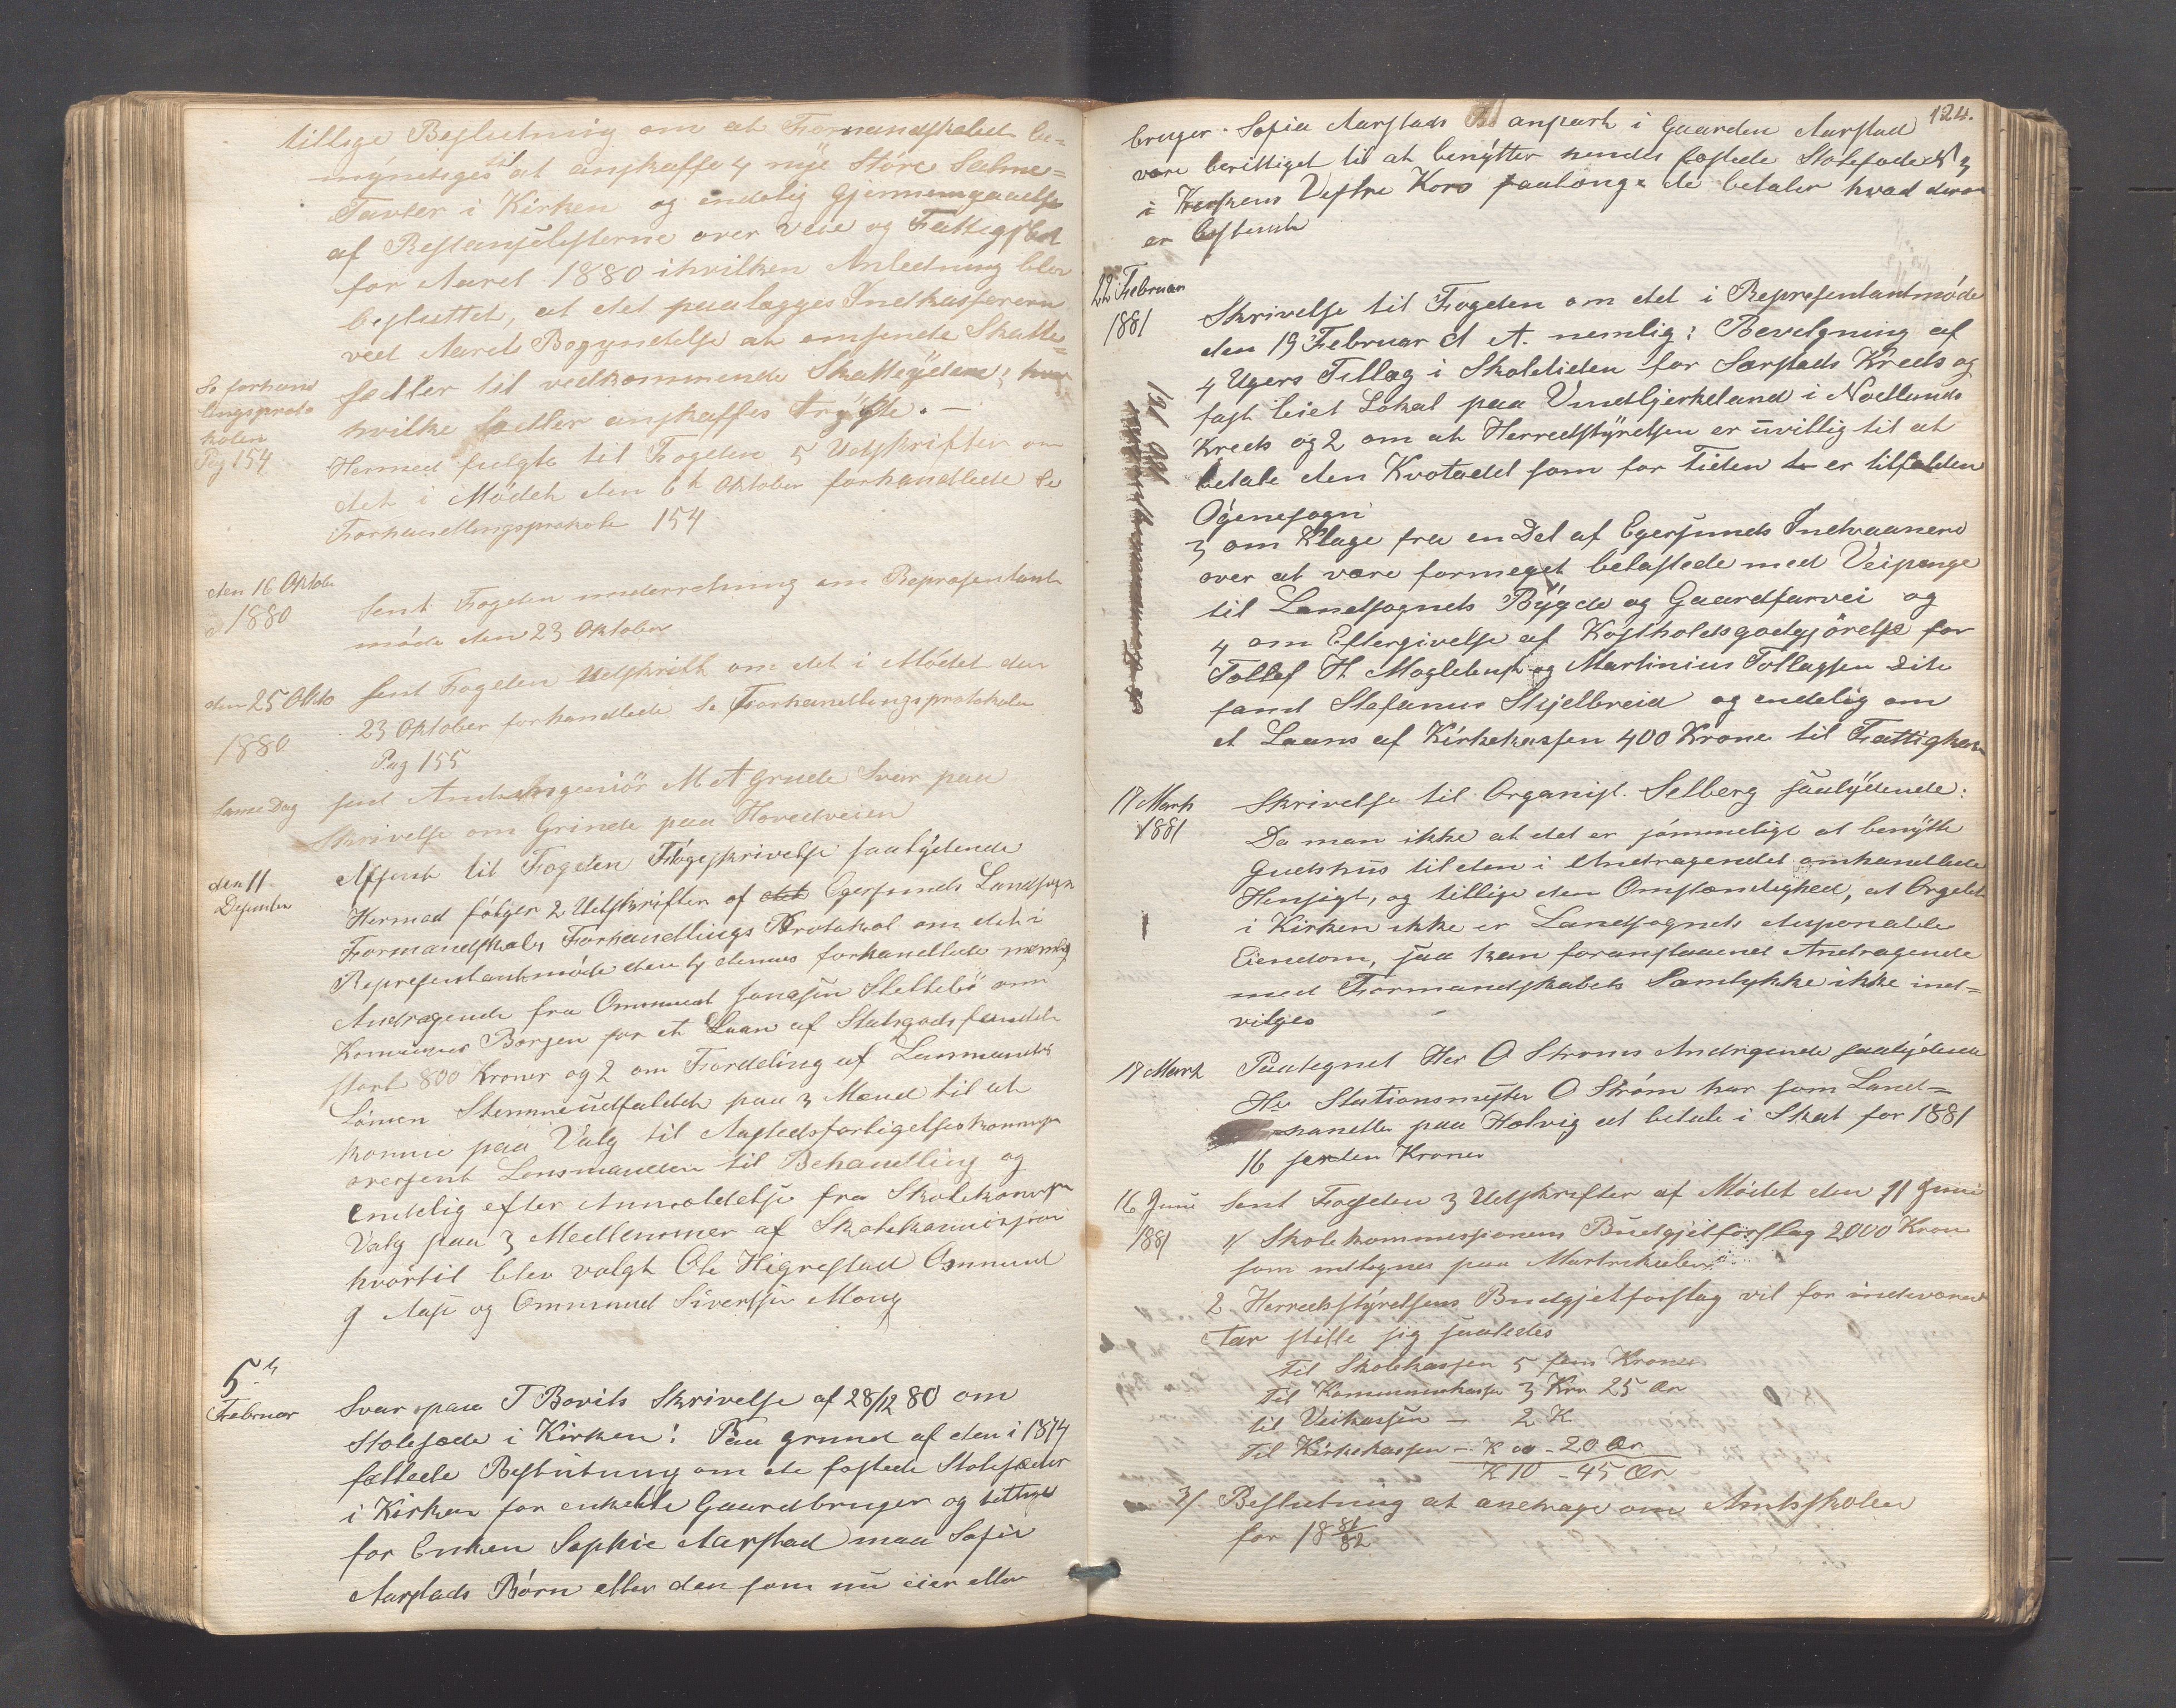 tillige Beslutning om at Formandskabet be-
myndiges til at anskaffe 4 nye Störe Salme-
Tavler i Kirken og endelig Gjennemgaaelse
af Restanselisterne over Veie og Fattigskat
for Aaret 1880 i hvilken Anledning blev
besluttet, at det paalægges Indkassereren
ved Aarets Begyndelse at omsende Skatte-
Se forhand
lingsproto
kolen
Pag 154
sedler til vedkommende Skatteydere; hvor
hvilke sedler anskaffes trÿgte. —
Hermed fulgte til Fogden 5 Udskrifter om
det i Mödet den 6te Oktober forhandlede Se
Forhandlingsprokole 154
den 16 Oktober
1880
Sent Fogden underretning om Repræsentant
möde den 23 Oktober
den 25 Okto
1880
sent Fogden Udskrift om det i Mödet den
23 Oktober forhandlede Se Forhandlingsprotokolen
Pag 155
Same Dag
send Amtsingeniör M A Grude Svar paa
Skrivelse om Grinde paa Hovedveien
den 11
Desember
Afsent til Fogden Fölgeskrivelse saalydende
Hermed fölger 2 Udskrifter af det Egersunds Landsogn
Formandskabs Forhandlings Protokol om det i
Representantmöde den 4 dennes forhandlede nemlig
Andragende fra Ommund Jonasen Slettebö om
Komunes Borgen for et Laan af Statsgodsfondet
stort 800 Kroner og 2 om Fordeling af Lensmands
Lönen Stemmeudfaldet paa 3 Mænd til at
komme paa Valg til Aastedsfortigelseskommisn
oversent Lensmanden til Behandling og
endelig efter Anmeldelse fra Skolekommisn
Valg paa 3 Medlemmer af Skolekommisjon
hvortil blev valgt Ole Higrestad Osmund
G Aase og Ommund Sivertsen Mong
5te
Februar
Svar paa T Bovits Skrivelse af 28/12 80 om
Stolesæde i Kirken: Paa grund af den i 1874
fattede Beslutning om de fæstede Stolesæder
i Kirken for enkelte Gaardbruger og tillige
for Enken Sophie Aarstad maa Sofie
Aarstads Börn eller den som nu eier eller
124.
bruger Sofia Aarstads anpart i Gaarden Aarstad
være berittiget til at benÿtter hendes fæstede Stolesæde N 3
i Kirkens Vestre Kors saalænge de betaler hvad derom
er bestemt
22 Februar
1881
Skrivelse til Fogden om det i Representantmöde
den 19 Februar d A. nemlig: Bevilgning af
4 Ugers Tillæg i Skoletiden for Sæstads Kreds og
fast leiet Lokal paa Undbjerkeland i Nodlunds
Kreds og 2 om at Herredstÿrelsen er uvillig til at
betale den Kvotadel som for Tiden er tilfalden
Ögnesogn
3 om Klage fra en Del af Egersunds Indvaanere
over at være formeget belastede med Veipenge
til Landsognets Bÿgde og Gaardfarvei og
4 om Eftergivelse af Kostholdsgodgjörelse for
Tollef H. Mogletust og Martinius Tollagsen Dito
samt Stefanus Stijelbreid og endelig om
et Laans af Kirkekassen 400 Krone til Fattigkasn
17 Marts
1881
Skrivelse til Organist. Selberg saalÿdende:
Da man ikke at det er sömmeligt at benÿtte
Gudshus til den i Andragendet omhandlede
Hensigt, og tillige den Omstændighed, at Orgelet
i Kirken ikke er Landsognets disponable
Eiendom, saa kan foranstaaend Andragende
med Formandskabets Samtykke ikke ind-
vilges
17 Mark
Paategnet Her O Ströms Andragende saalÿdende
Hr Stationsmester O Ström har som Land-
handler paa Helvig at betale i Skat for 1881
16 sexten Kroner
16 Juni
1881
Sent Fogden 3 Udskrifter af Mödet den 11 Juni
1/ Skolekommissionens Budgjetforslag 2000 Kron
som udlagnes paa Martrikulen
2 Herredsstÿrelsens Budgjetforslag vil for indeværend
Aar stille sig saaledes
Til Skolekassen 5 fem Kroner
Til Kommunekasse 3 Krn 25 Ör
til Veikassen — 2 K
Til Kirkekassen — K oo - 20 Ör
K 10 - 45 Ör
3/ Beslutning at andrage om Amtsskolen
for 18 81/82